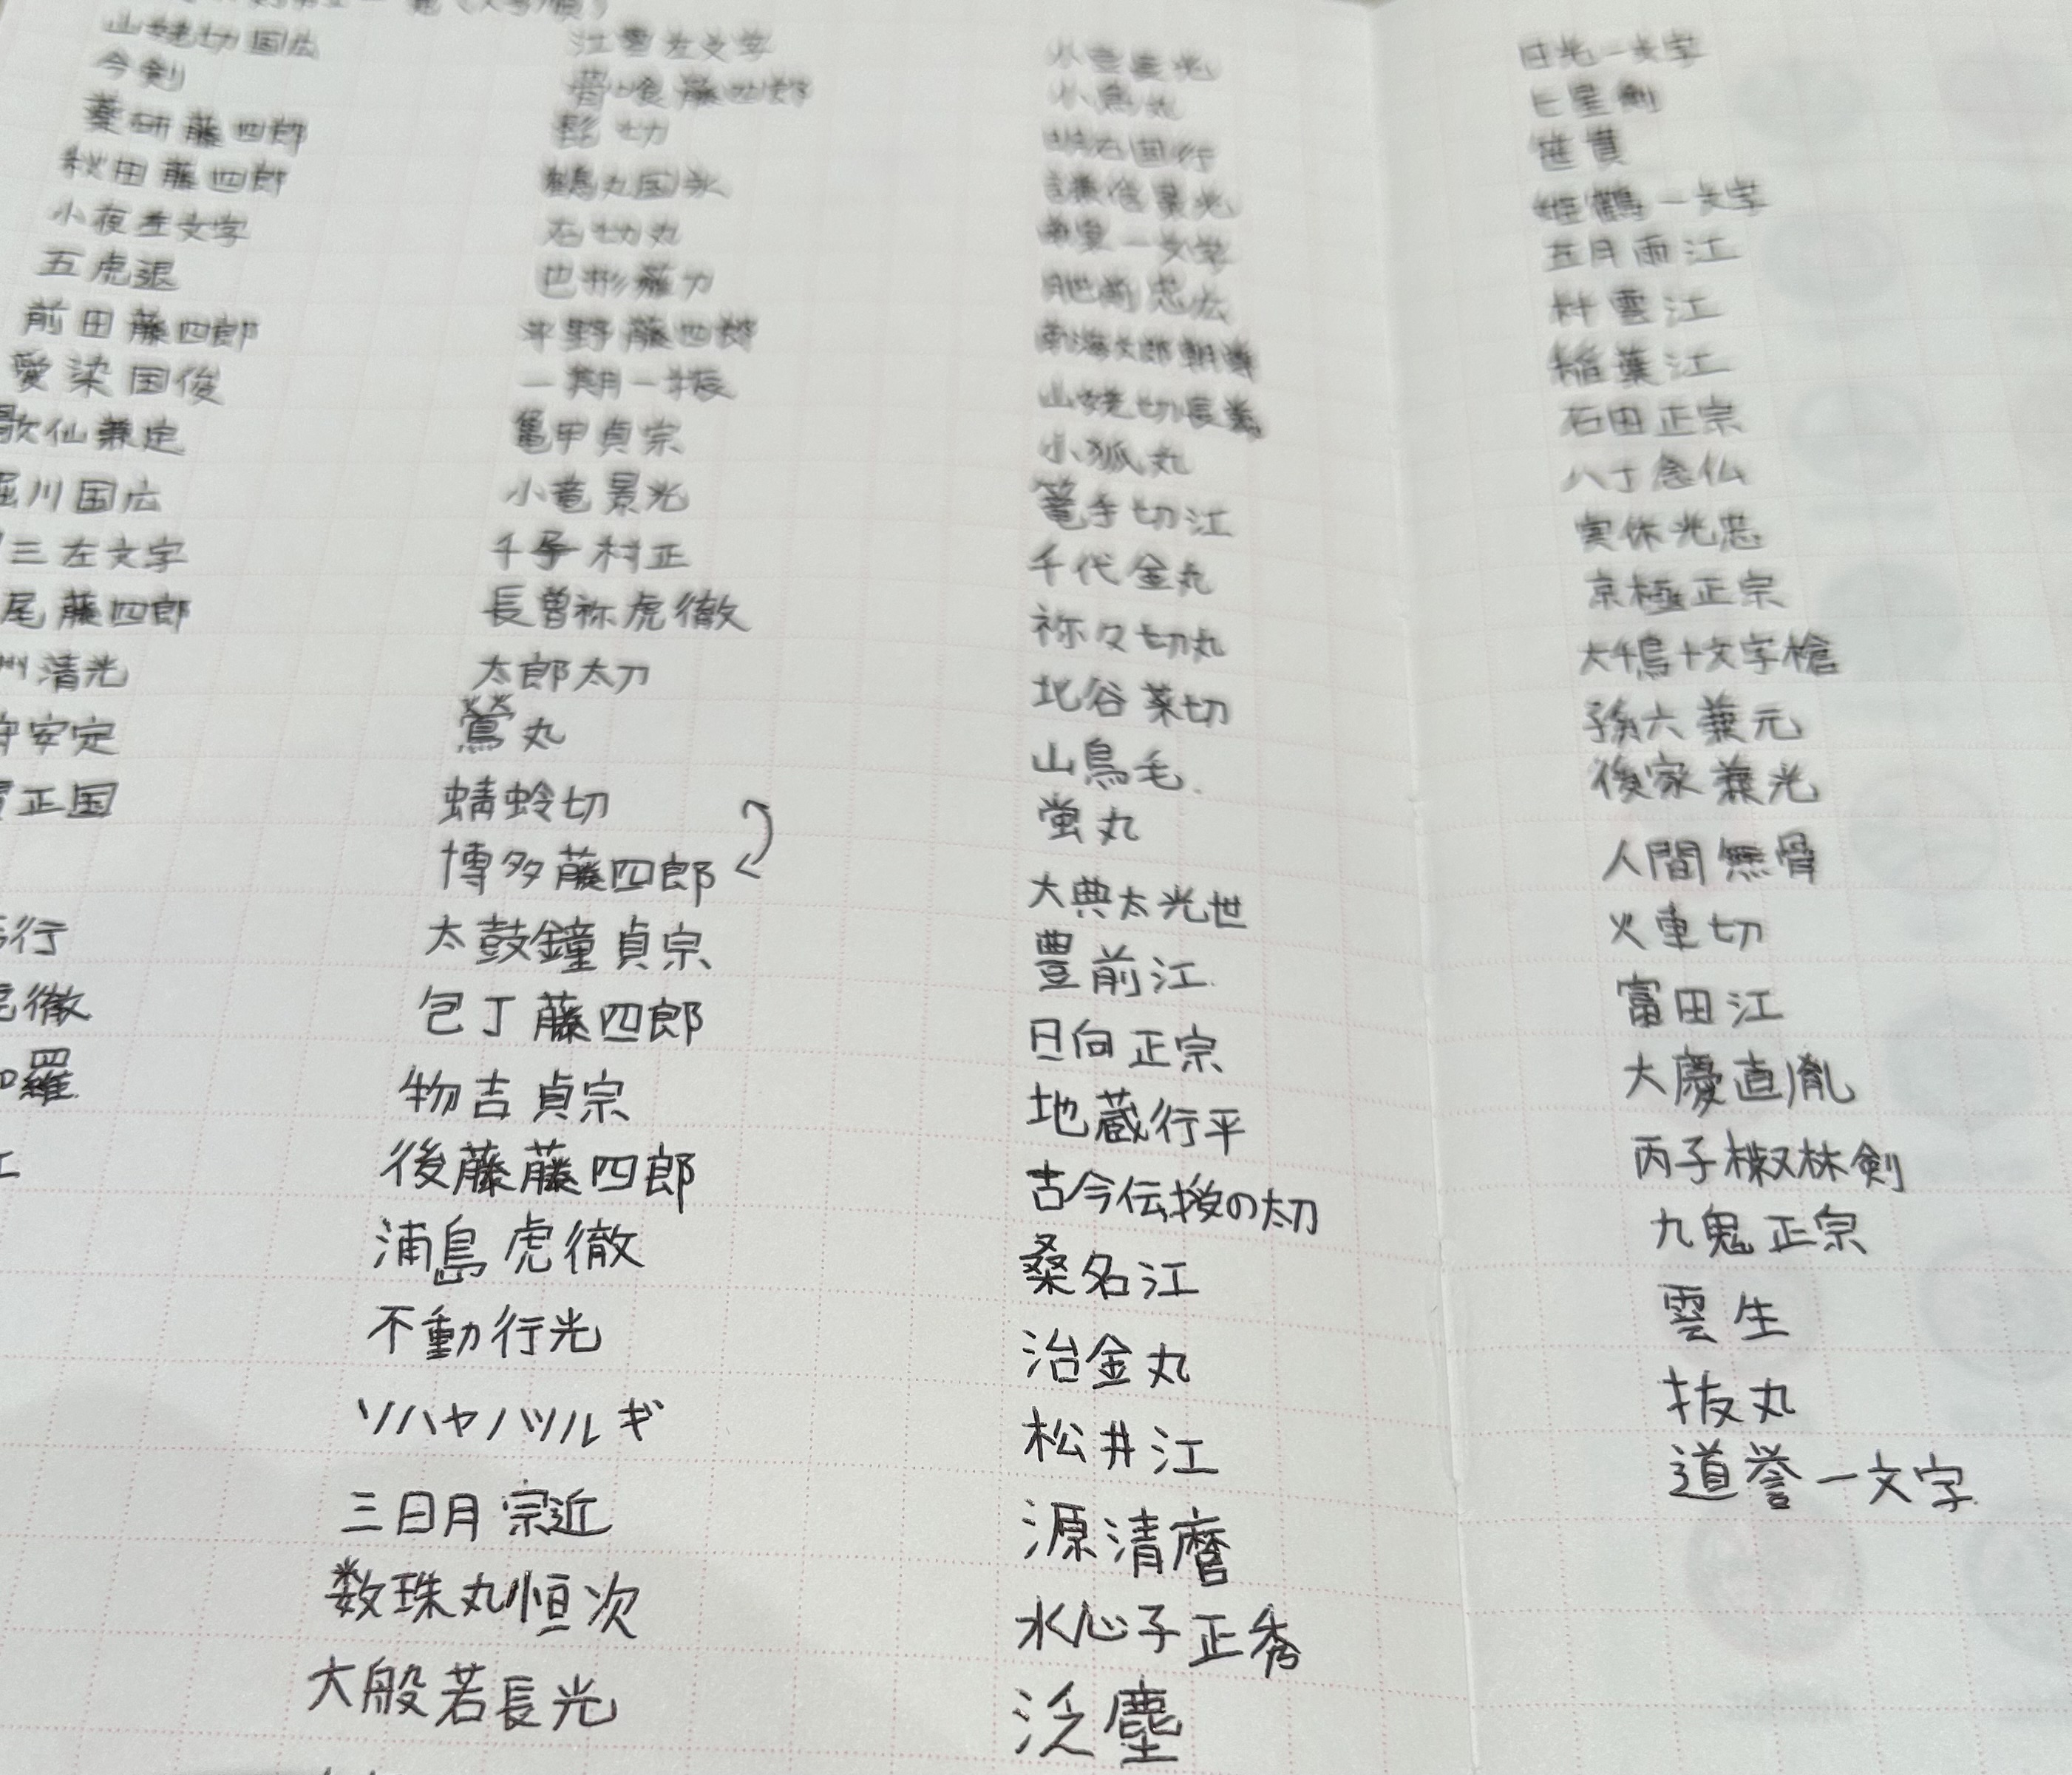 山姥切国広
今剣
薬研藤四郎
秋田藤四郎
小夜左文字
五虎退
前田藤四郎
愛染国俊
歌仙兼定
堀川国広
三左文字
尾藤四郎
州清光
守安定
正国
行
虎徹
羅
江雪左文字
骨喰藤四郎
髭切
鶴丸国永
石切丸
巴形薙刀
平野藤四郎
一期一振
亀甲貞宗
小竜景光
千子村正
長曽祢虎徹
太郎太刀
鶯丸
蜻蛉切
博多藤四郎
太鼓鐘貞宗
包丁藤四郎
物吉貞宗
後藤藤四郎
浦島虎徹
不動行光
ソハヤノツルギ
三日月宗近
数珠丸恒次
大般若長光
小烏丸
明石国行
謙信景光
南泉一文字
肥前忠広
南海太郎朝尊
山姥切長義
小狐丸
篭手切江
千代金丸
祢々切丸
北谷菜切
山鳥毛
蛍丸
大典太光世
豊前江
日向正宗
地蔵行平
古今伝授の太刀
桑名江
治金丸
松井江
源清麿
水心子正秀
泛塵
日光一文字
七星剣
笹貫
姫鶴一文字
五月雨江
村雲江
稲葉江
石田正宗
八丁念仏
実休光忠
京極正宗
大千鳥十文字槍
孫六兼元
後家兼光
人間無骨
火車切
富田江
大慶直胤
丙子椒林剣
九鬼正宗
雲生
抜丸
道誉一文字